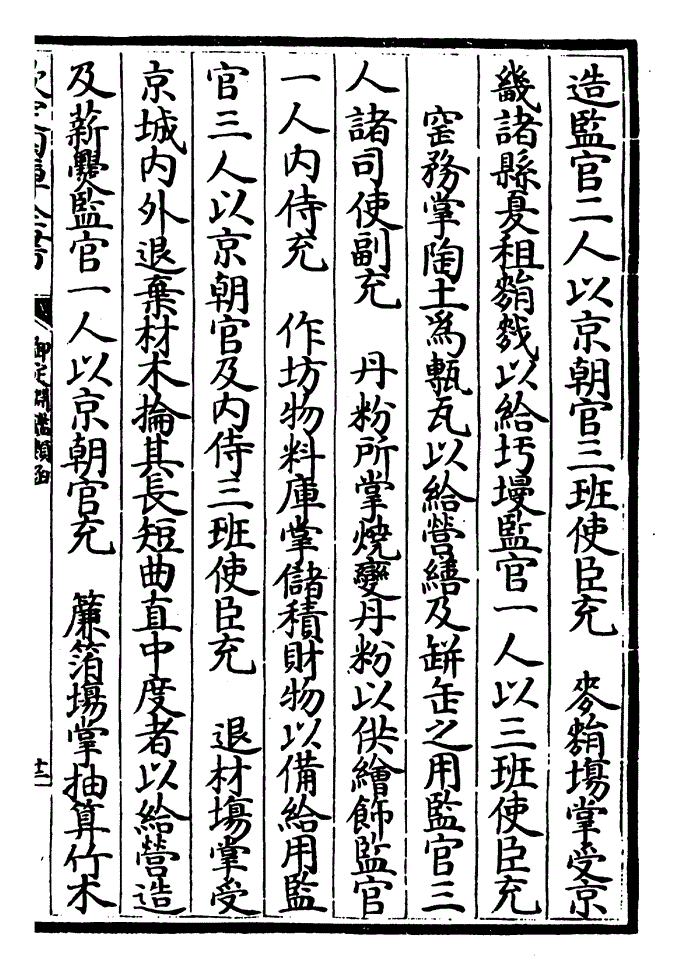 造監官二人以京朝官三班使臣充　麥場掌受京
畿諸縣夏租以給圬墁監官一人以三班使臣充
窑務掌陶土為甎瓦以給營繕及缾缶之用監官三
人諸司使副充　丹粉所掌燒變丹粉以供繪飾監官
一人内侍充　作坊物料庫掌儲積財物以備給用監
官三人以京朝官及内侍三班使臣充　退材塲掌受
京城内外退棄材木掄其長短曲直中度者以給營造
及薪爨監官一人以京朝官充　簾箔塲掌抽算竹木
欽定四庫全書　御定淵鑑類函